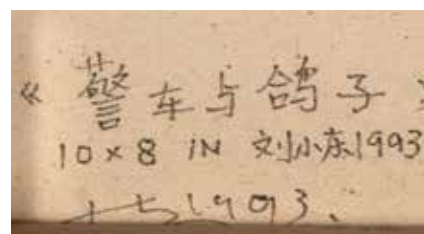 《警车与鸽子》
10×8 IN 刘小东1993
1993.